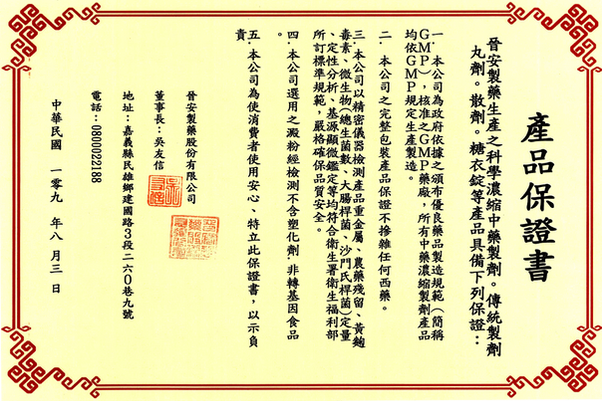 產品保證書
晉安製藥生產之科學濃縮中藥製劑。傳統製劑
丸劑。散劑。糖衣錠等產品具備下列保證：
一、本公司為政府依據之頒布優良藥品製造規範（簡稱
GMP），核准之GMP藥廠，所有中藥濃縮製劑產品
均依GMP規定生產製造。
二、本公司之完整包裝產品保證不摻雜任何西藥。
三、本公司以精密儀器檢測產品重金屬、農藥殘留、黃麴
毒素、微生物(總生菌數、大腸桿菌、沙門氏桿菌)定量
、定性分析、基源顯微鑑定等均符合衛生署衛生福利部
所訂標準規範，嚴格確保品質安全。
四、本公司選用之澱粉經檢測不含塑化劑、非轉基因食品
。
五、本公司為使消費者使用安心、特立此保證書，以示負
責
晉安製藥股份有限公司
董事長：吳友信
地址：嘉義縣民雄鄉建國路3段二六0巷九號
電話：0800022188
中華民國 一零九 年八月三日